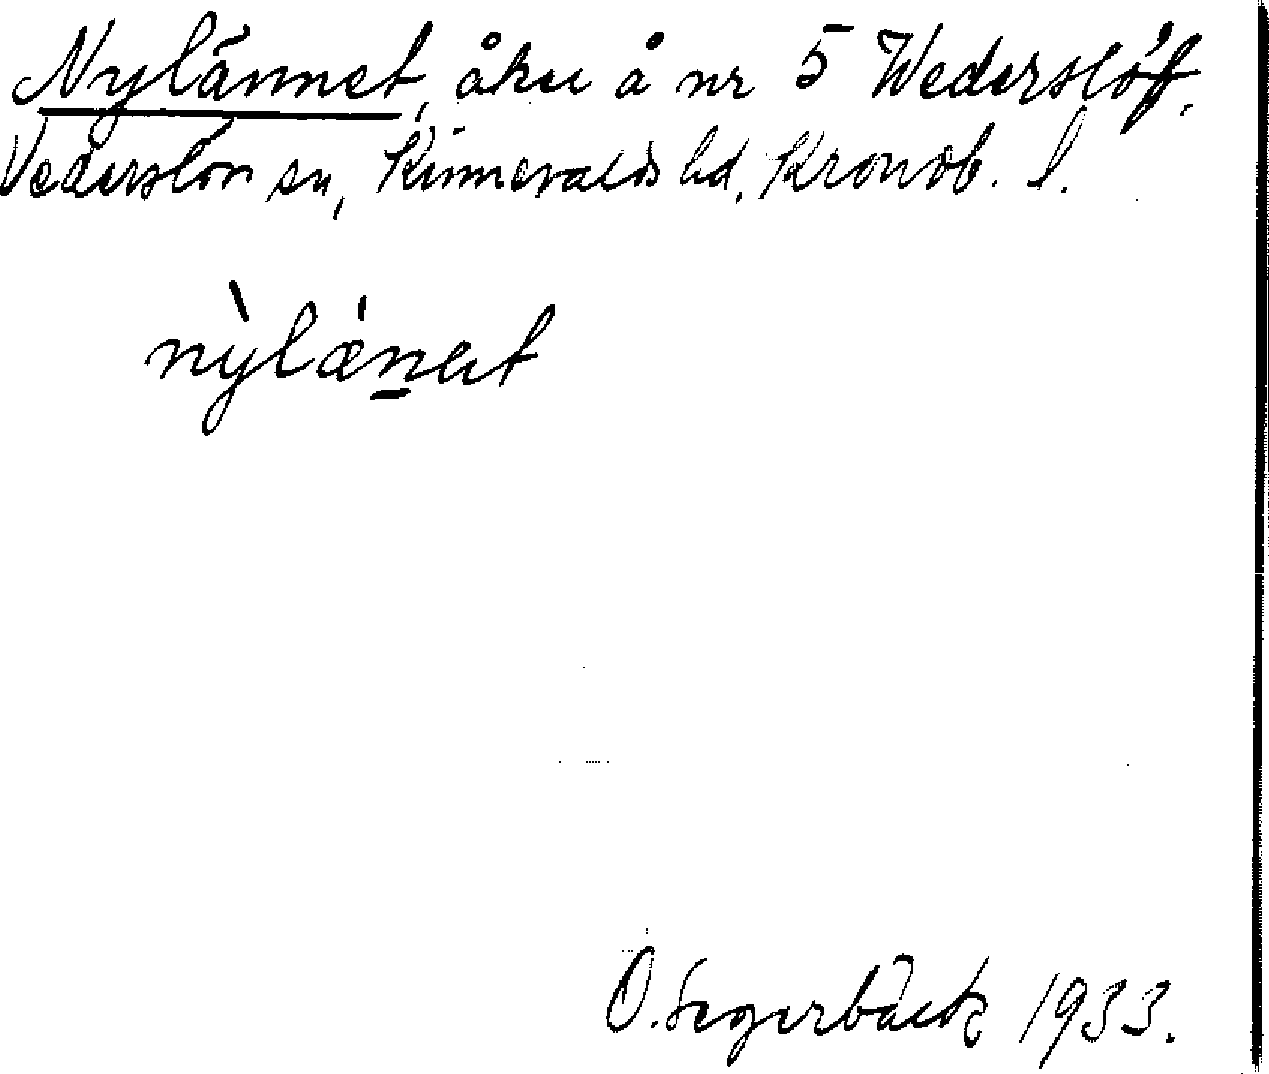 Nylännet, åker å nr 5 Wederslöf,
Vederslöv sn, Kinnevalds hd, Kronob. l.
nỳlǽnet
O. Segerbäck 1933.